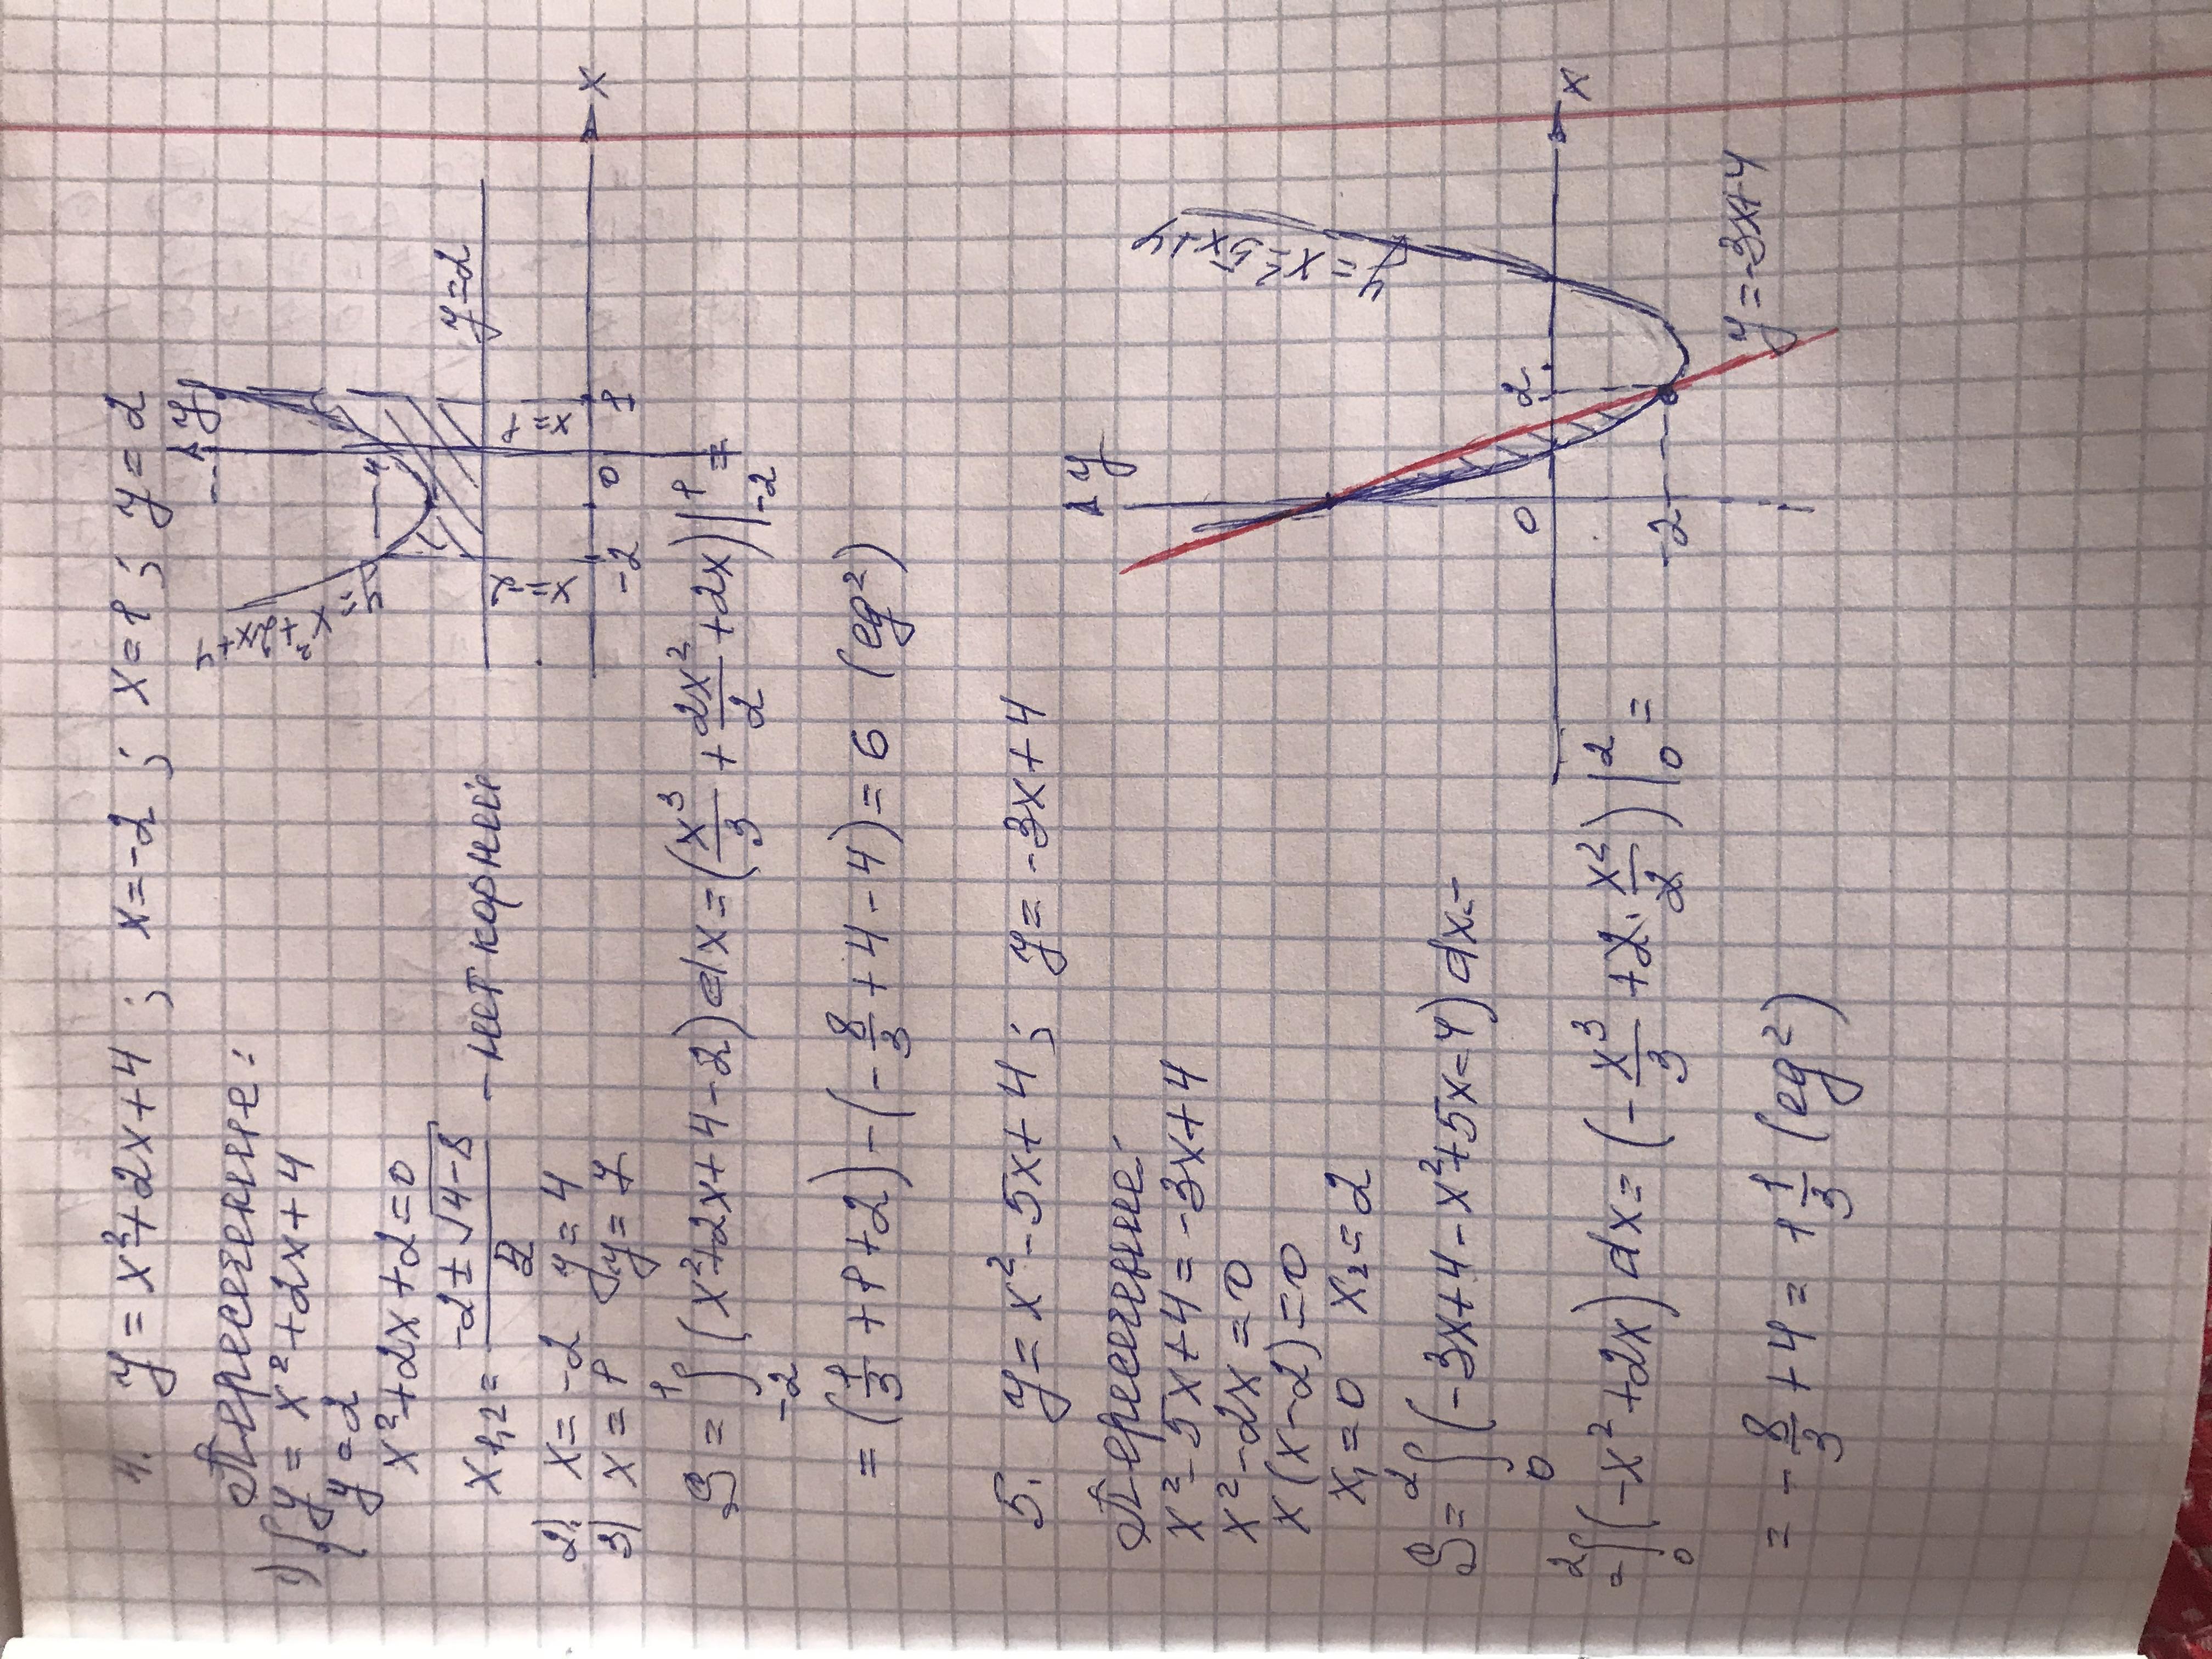 4. y = x²+2x+4 ; x=-2 ; x=1 ; y=2
Пересечение:
1) { y = x²+2x+4
y=2
x²+2x+2=0
x1,2 = (-2±√(4-8))/2 – нет корней
2) x=-2 y=4
3) x=1 y=7
S = ∫₋₂¹ (x²+2x+4-2)dx = (x³/3 + 2x²/2 + 2x)|₋₂¹ =
= (1/3+1+2)-(-8/3+4-4)=6 (ед²)
y
y=x²+2x+4
4
y=2
x=-2
x=1
-2 0 1 x
5. y=x²-5x+4; y=-3x+4
Пересечение:
x²-5x+4=-3x+4
x²-2x=0
x(x-2)=0
x₁=0 x₂=2
S=∫₀² (-3x+4-x²+5x-4)dx=
=∫₀² (-x²+2x)dx=(-x³/3+2·x²/2)|₀² =
= -8/3+4 = 1 1/3 (ед²)
y
y=x²-5x+4
0 2 x
-2
y=-3x+4